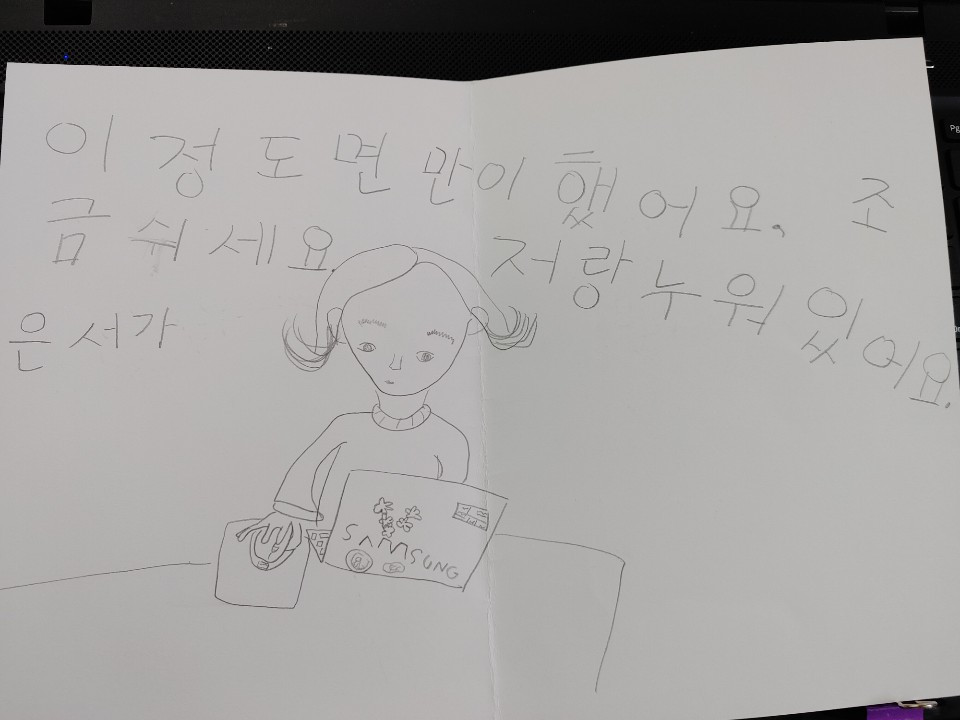 이 정도면 만이 했어요. 조
금 쉬세요. 저랑 누워 있어요.
은서가
SAMSUNG
Pg